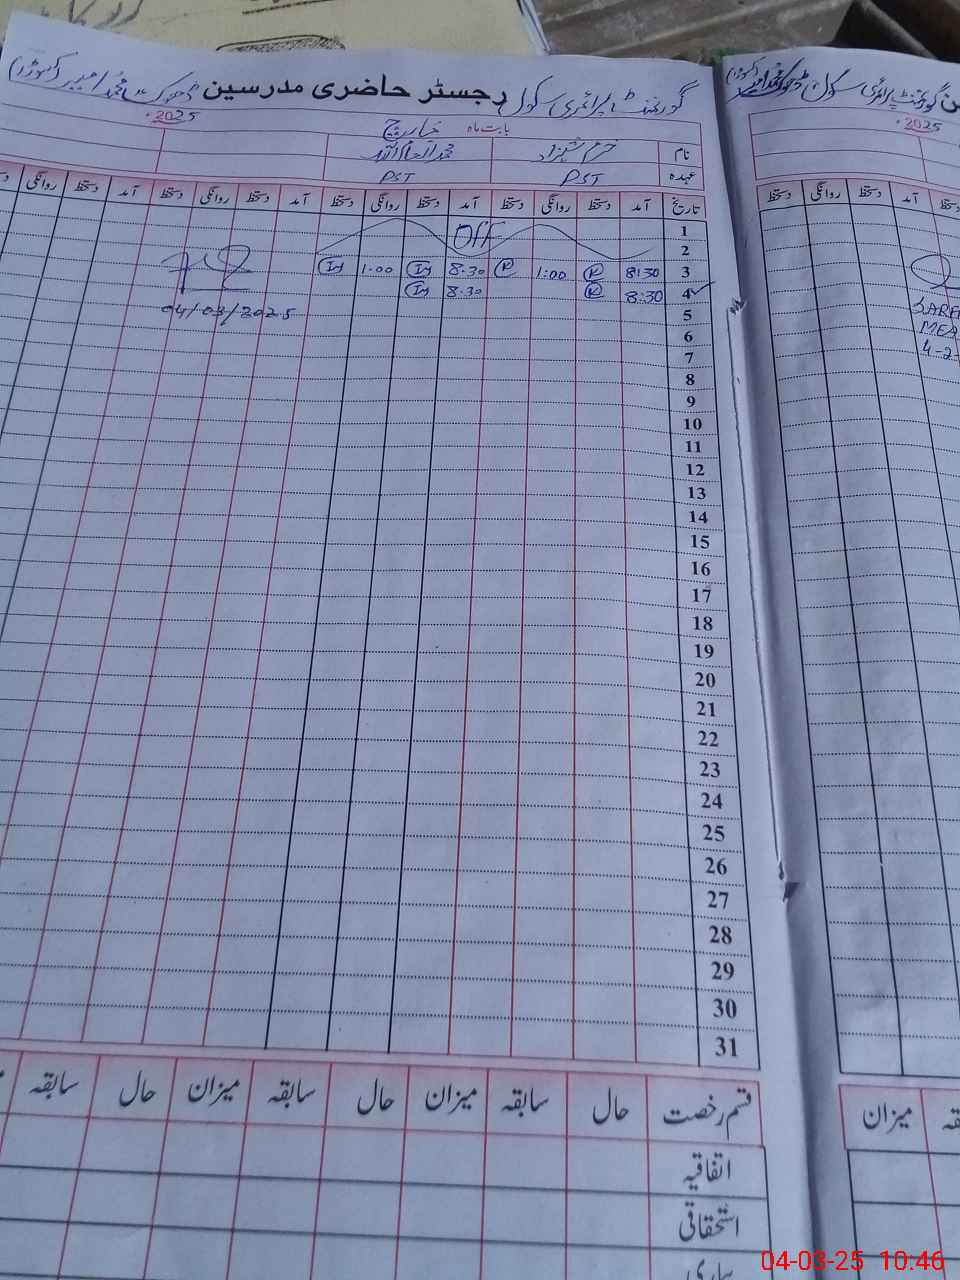 گورنمنٹ پرائمری سکول رجسٹر حاضری مدرسین ڈھوک محمد امیر (کسوڑا)
بابت ماہ مارچ 2025
نام خرم شہزاد محمد انعام اللہ
عہدہ PST PST
تاریخ آمد دستخط روانگی دستخط آمد دستخط روانگی دستخط آمد دستخط روانگی دستخط آمد دستخط روانگی
1
Off
2
3 8:30 K 1:00 K 8.30 Im 1.00 Im
4 8:30 K 8.30 Im
04/03/2025
5
6
7
8
9
10
11
12
13
14
15
16
17
18
19
20
21
22
23
24
25
26
27
28
29
30
31
قسم رخصت حال سابقہ میزان حال سابقہ میزان حال سابقہ
اتفاقیہ
استحقاقی
بیماری
گورنمنٹ پرائمری سکول
2025
آمد روانگی دستخط
4-2-
میزان
04-03-25 10:46